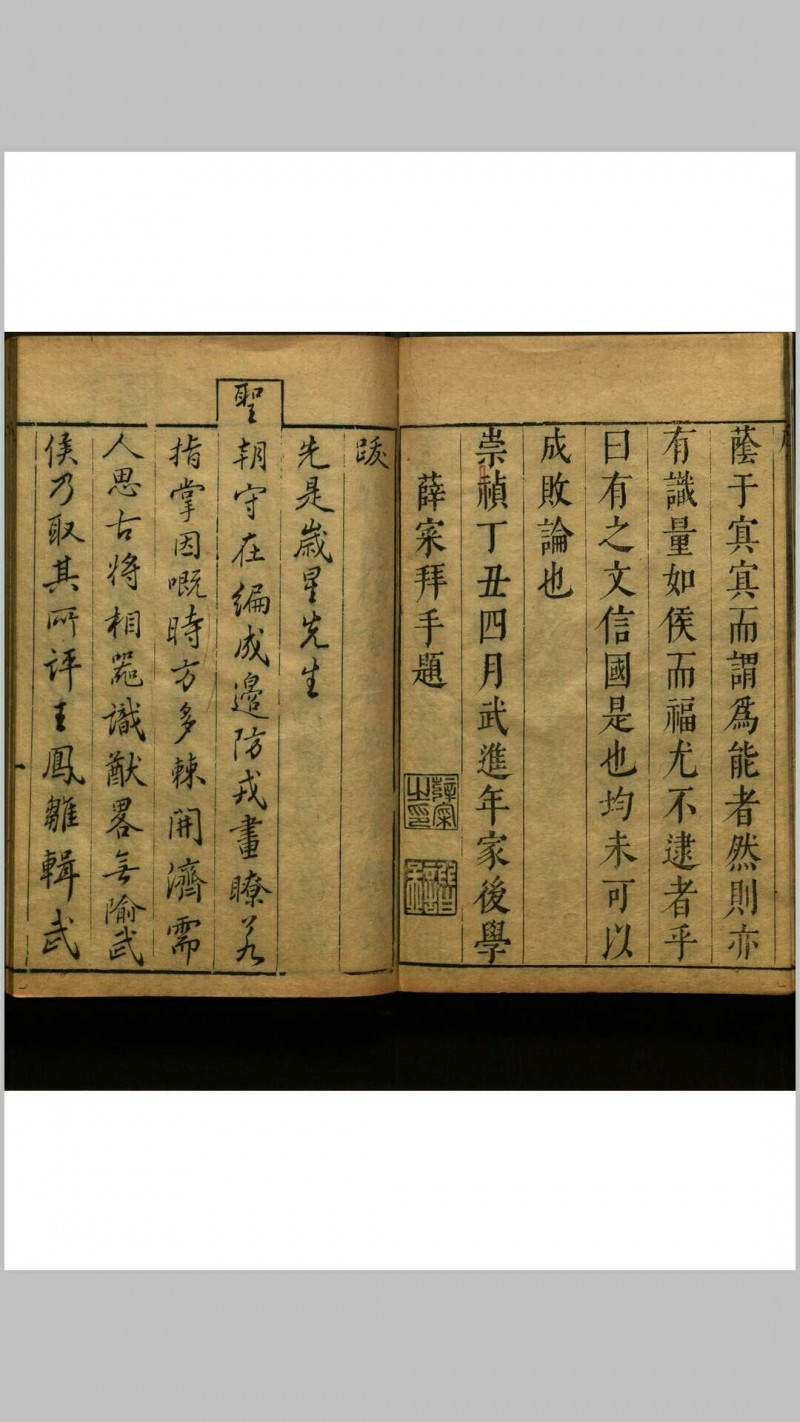 蔭于寘寘而謂爲能者然則亦
有識量如侯而福尤不逮者乎
曰有之文信國是也均未可以
成敗論也
崇禎丁丑四月武進年家後學
薛寀拜手題
跋
先是歲星先生
聖朝守在編成邊防戎畫瞭若
指掌因嘅時方多棘開濟需
人思古將相器識猷畧無踰武
侯乃取其所評王鳳雛輯武